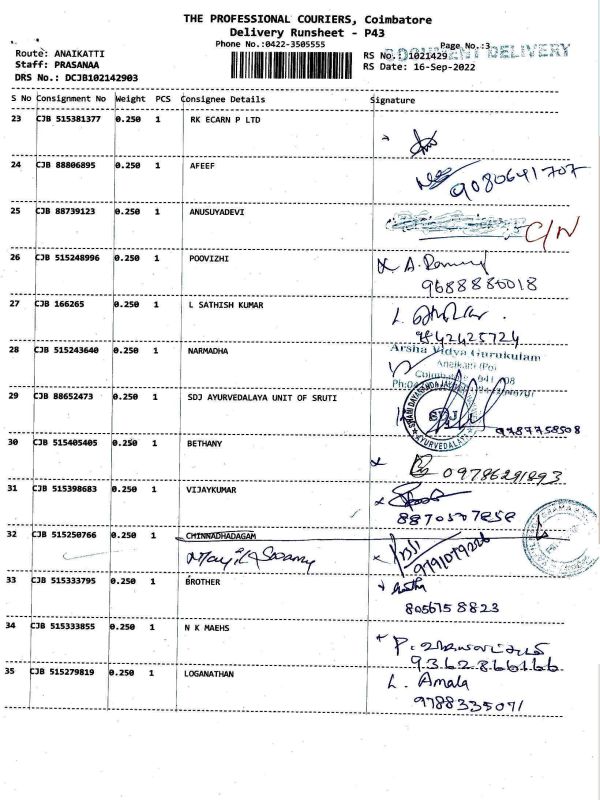 THE PROFESSIONAL COURIERS, Coimbatore
Delivery Runsheet - P43
Phone No.:0422-3505555
Page No.:3
DOCUMENT DELIVERY
Route: ANAIKATTI
RS No.: 1021429
Staff: PRASANAA
RS Date: 16-Sep-2022
DRS No.: DCJB102142903
S No Consignment No Weight PCS Consignee Details Signature
23 CJB 515381377 0.250 1 RK ECARN P LTD
24 CJB 88806895 0.250 1 AFEEF
9080641707
25 CJB 88739123 0.250 1 ANUSUYADEVI
C/N
26 CJB 515248996 0.250 1 POOVIZHI
9688880018
27 CJB 166265 0.250 1 L SATHISH KUMAR
9842425724
28 CJB 515243640 0.250 1 NARMADHA
Arsha Vidya Gurukulam
Anaikatti (Po)
29 CJB 88652473 0.250 1 SDJ AYURVEDALAYA UNIT OF SRUTI
SDJ
AYURVEDALAYA
9787758508
30 CJB 515405405 0.250 1 BETHANY
09786291893
31 CJB 515398683 0.250 1 VIJAYKUMAR
32 CJB 515250766 0.250 1 CHINNADHADAGAM
33 CJB 515333795 0.250 1 BROTHER
8056758823
34 CJB 515333855 0.250 1 N K MAEHS
9362866166
35 CJB 515279819 0.250 1 LOGANATHAN
L. Amala
9788335071